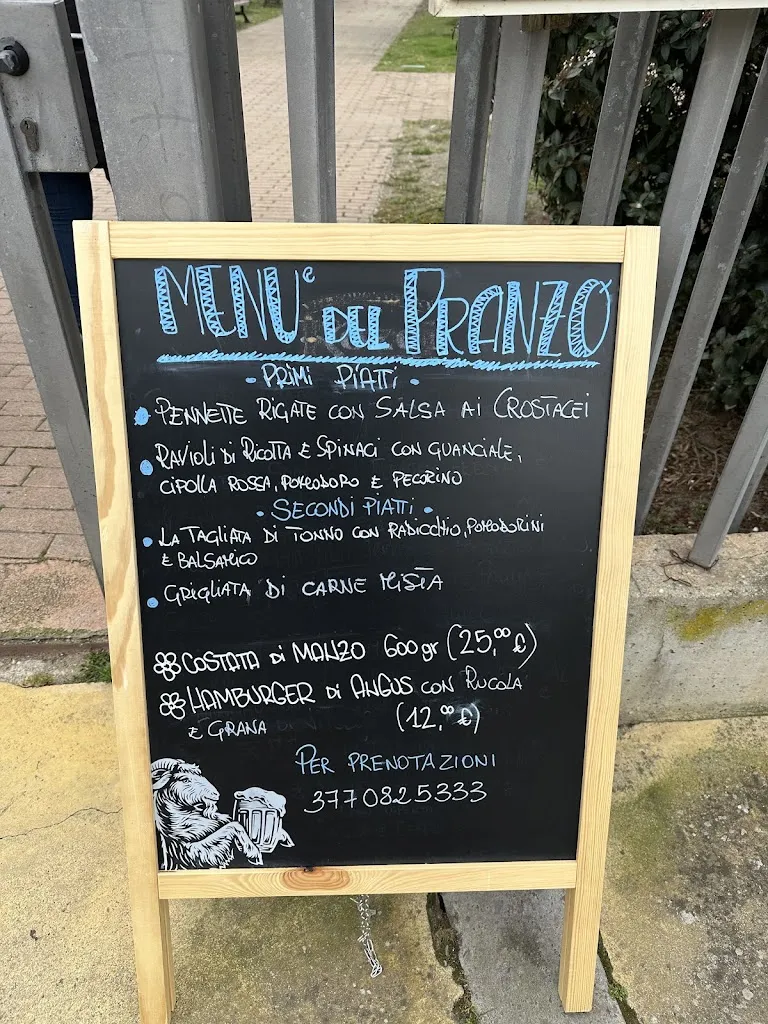 MENU' DEL PRANZO
- PRIMI PIATTI -
• PENNETTE RIGATE CON SALSA AI CROSTACEI
• RAVIOLI DI RICOTTA E SPINACI CON GUANCIALE,
CIPOLLA ROSSA, POMODORO E PECORINO
• SECONDI PIATTI •
• LA TAGLIATA DI TONNO CON RADICCHIO, POMODORINI
E BALSAMICO
• GRIGLIATA DI CARNE MISTA
COSTATA DI MANZO 600gr (25,00 €)
HAMBURGER DI ANGUS CON RUCOLA
E GRANA (12,00 €)
PER PRENOTAZIONI
3770825333